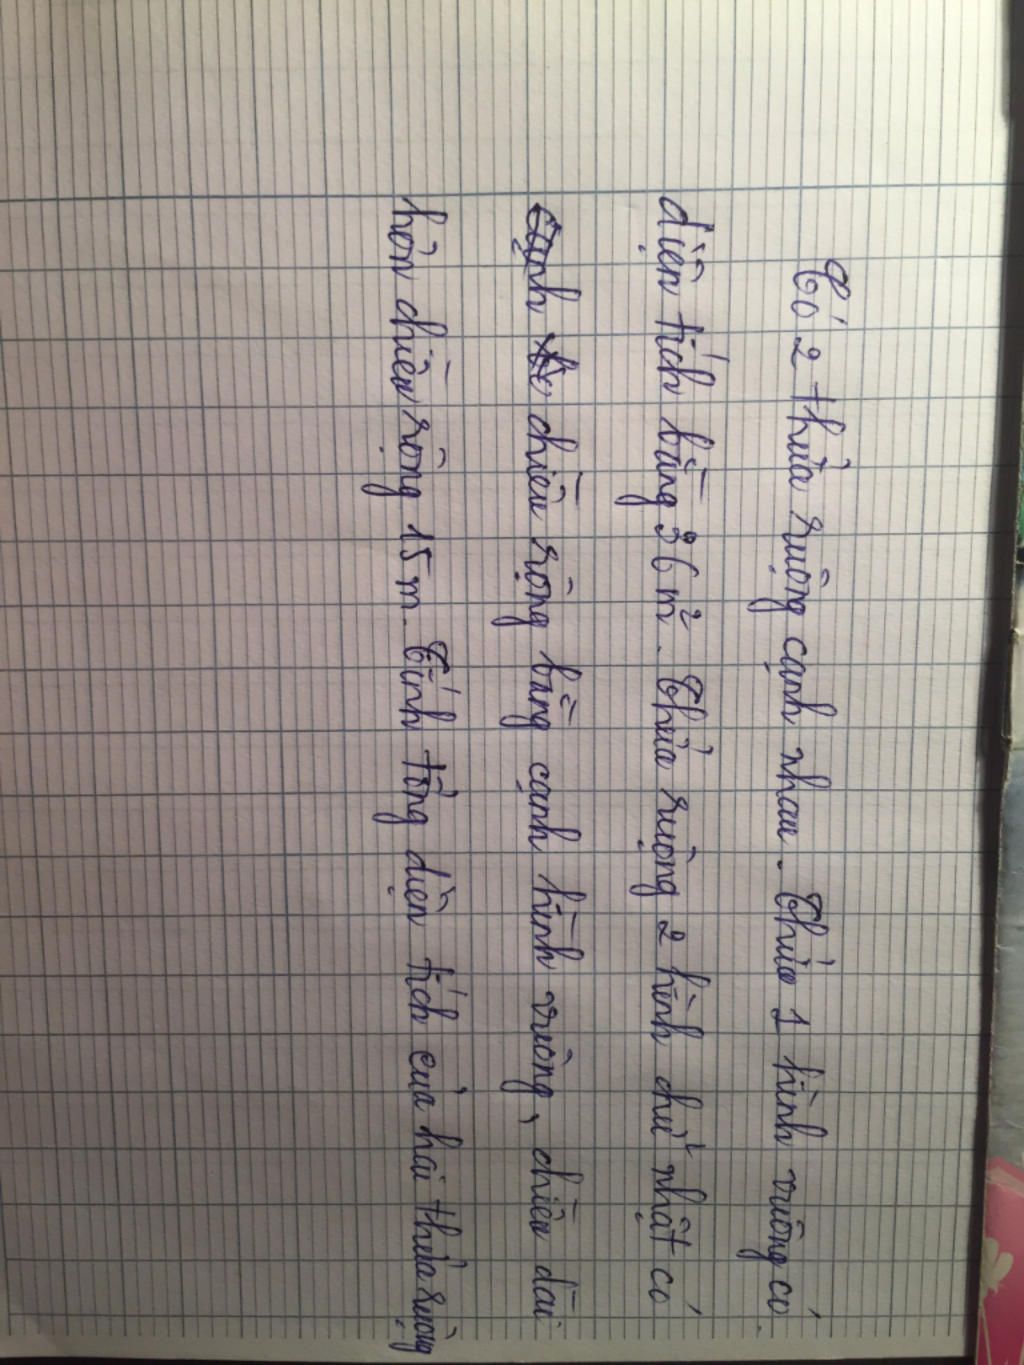 Có 2 thửa ruộng cạnh nhau. Thửa 1 hình vuông có
diện tích bằng 36 m². Thửa ruộng 2 hình chữ nhật có
chiều rộng bằng cạnh hình vuông, chiều dài
hơn chiều rộng 15 m. Tính tổng diện tích của hai thửa ruộng